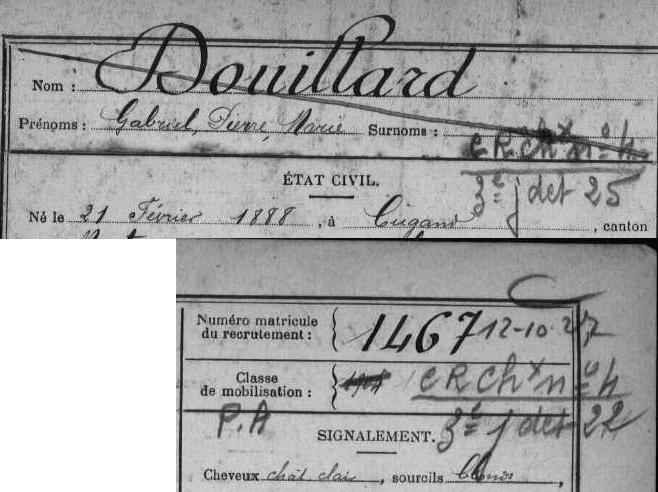 Nom : Douillard
Prénoms : Gabriel, Pierre, Marie Surnoms :
cRchxn°4
3e j det 25
ÉTAT CIVIL.
Né le 21 Février 1888, à Cugand, canton
Numéro matricule
du recrutement : 1467 12-10-27
Classe
de mobilisation : cRchxn°4
P.A
3e j det 22
SIGNALEMENT.
Cheveux chât clair, sourcils blonds,